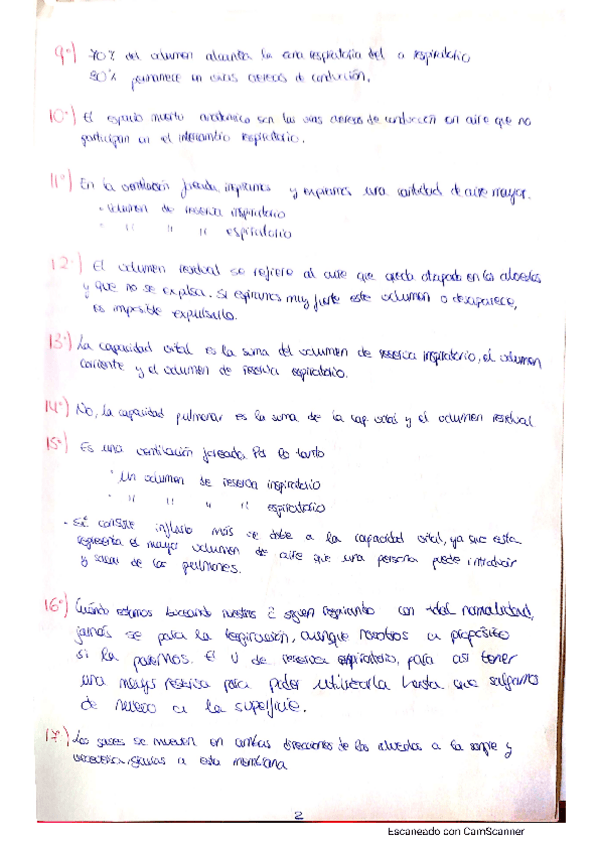 9º) 70% del volumen alcanza la zona respiratoria del o respiratorio
30% permanece en vías aereas de conducción.
10º) El espacio muerto anatómico son las vías aereas de conducción con aire que no
participan en el intercambio respiratorio.
11º) En la ventilación forzada, inspiramos y espiramos una cantidad de aire mayor.
· Volumen de reserva inspiratorio
· " " " espiratorio
12º) El volumen residual se refiere al aire que queda atrapado en los alveolos
y que no se expulsa. Si espiramos muy fuerte este volumen o desaparece,
es imposible expulsarlo.
13º) La capacidad vital es la suma del volumen de reserva inspiratorio, el volumen
corriente y el volumen de reserva espiratorio.
14º) No, la capacidad pulmonar es la suma de la cap. vital y el volumen residual
15º) Es una ventilación forzada. Por lo tanto
· Un volumen de reserva inspiratorio
· " " " " espiratorio
· Si consigue inflarlo más se debe a la capacidad vital, ya que esta
representa el mayor volumen de aire que una persona puede introducir
y sacar de los pulmones.
16º) Cuándo estamos buceando nuestros siguen respirando con total normalidad,
jamás se para la respiración, aunque nosotros a propósito
si la paremos. El V de reserva espiratorio, para así tener
una mayor reserva para poder utilizarla hasta que salgamos
de nuevo a la superficie.
17º) Los gases se mueven en ambas direcciones de los alveolos a la sangre y
viceversa, gracias a esta membrana
2
Escaneado con CamScanner